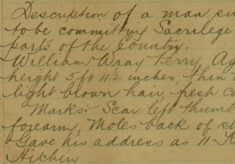 Description of a man su
to be commiting Sacrilege
parts of the Country.
William Wray Terry, Ag
height 5 ft 4½ inches, thin
light brown hair, fresh c
Marks: Scar left thumb
forearm, Moles back of s
Gave his address as 11